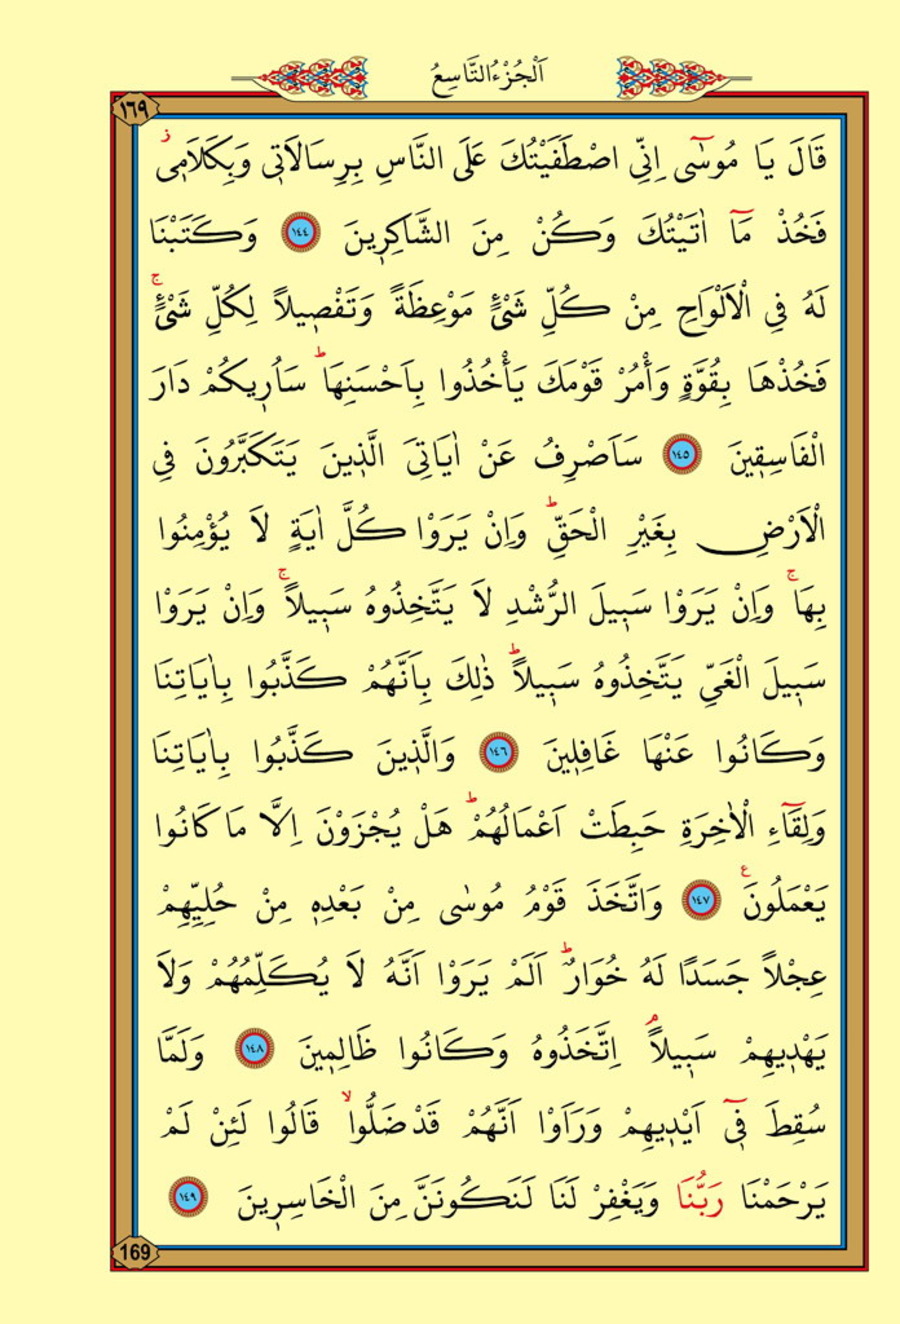 اَلْجُزْءُ التَّاسِعُ
١٦٩
قَالَ يَا مُوسٰٓى اِنِّي اصْطَفَيْتُكَ عَلَى النَّاسِ بِرِسَالَاتٖي وَبِكَلَامٖيۘ ز
فَخُذْ مَٓا اٰتَيْتُكَ وَكُنْ مِنَ الشَّاكِرٖينَ ١٤٤ وَكَتَبْنَا
لَهُ فِي الْاَلْوَاحِ مِنْ كُلِّ شَيْئٍ مَوْعِظَةً وَتَفْصٖيلاً لِكُلِّ شَيْئٍۚ
فَخُذْهَا بِقُوَّةٍ وَأْمُرْ قَوْمَكَ يَأْخُذُوا بِاَحْسَنِهَاؕ سَاُرٖيكُمْ دَارَ
الْفَاسِقٖينَ ١٤٥ سَاَصْرِفُ عَنْ اٰيَاتِيَ الَّذٖينَ يَتَكَبَّرُونَ فِي
الْاَرْضِ بِغَيْرِ الْحَقِّؕ وَاِنْ يَرَوْا كُلَّ اٰيَةٍ لَا يُؤْمِنُوا
بِهَاۚ وَاِنْ يَرَوْا سَبٖيلَ الرُّشْدِ لَا يَتَّخِذُوهُ سَبٖيلاًۚ وَاِنْ يَرَوْا
سَبٖيلَ الْغَيِّ يَتَّخِذُوهُ سَبٖيلاًؕ ذٰلِكَ بِاَنَّهُمْ كَذَّبُوا بِاٰيَاتِنَا
وَكَانُوا عَنْهَا غَافِلٖينَ ١٤٦ وَالَّذٖينَ كَذَّبُوا بِاٰيَاتِنَا
وَلِقَٓاءِ الْاٰخِرَةِ حَبِطَتْ اَعْمَالُهُمْؕ هَلْ يُجْزَوْنَ اِلَّا مَا كَانُوا
يَعْمَلُونَ ع ١٤٧ وَاتَّخَذَ قَوْمُ مُوسٰى مِنْ بَعْدِهٖ مِنْ حُلِيِّهِمْ
عِجْلاً جَسَدًا لَهُ خُوَارٌؕ اَلَمْ يَرَوْا اَنَّهُ لَا يُكَلِّمُهُمْ وَلَا
يَهْدٖيهِمْ سَبٖيلاًۢ اِتَّخَذُوهُ وَكَانُوا ظَالِمٖينَ ١٤٨ وَلَمَّا
سُقِطَ فٖٓي اَيْدٖيهِمْ وَرَاَوْا اَنَّهُمْ قَدْ ضَلُّواۙ قَالُوا لَئِنْ لَمْ
يَرْحَمْنَا رَبُّنَا وَيَغْفِرْ لَنَا لَنَكُونَنَّ مِنَ الْخَاسِرٖينَ ١٤٩
169